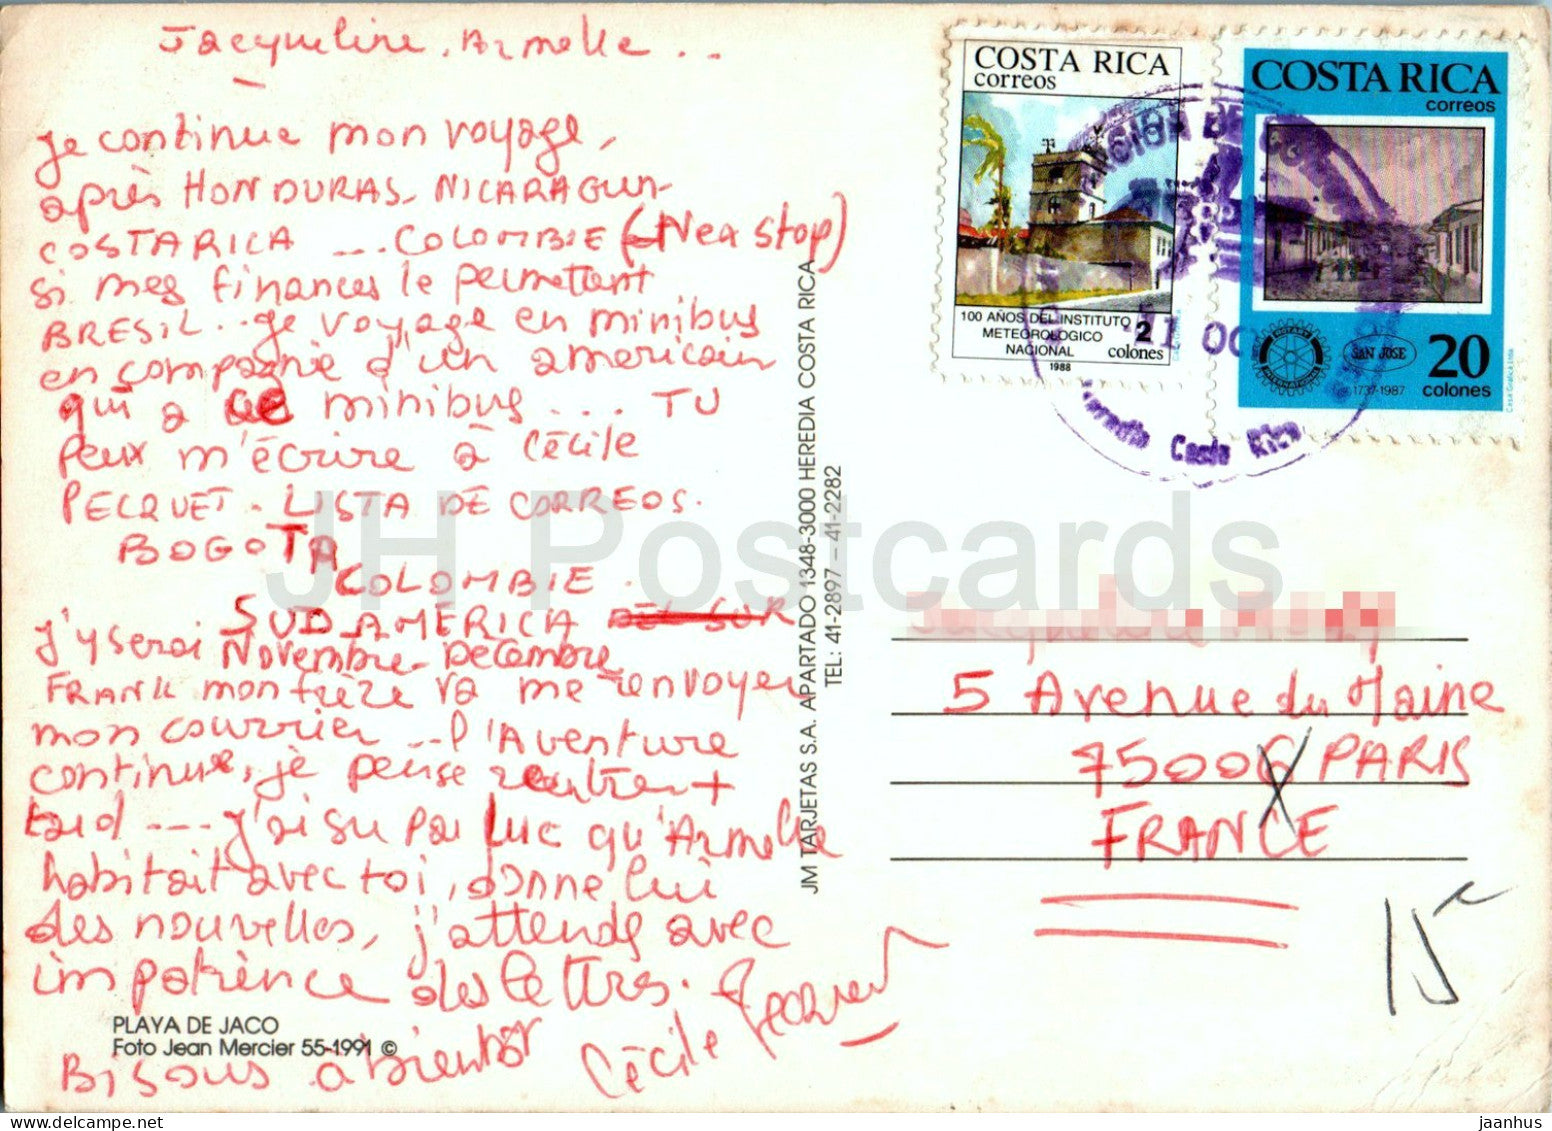 Jacqueline, Armelle ..
Je continue mon voyage,
après HONDURAS- NICARAGUA
COSTARICA .... COLOMBIE (Nex Stop)
si mes finances le permettent
BRESIL... je voyage en minibus
en compagnie d'un americain
qui a ce minibus .... TU
Peux m'écrire à Cécile
PECQUET. LISTA DE CORREOS.
BOGOTA
COLOMBIE.
SUD AMERICA DEL SUR
J'y serai Novembre-Decembre
FRANK mon frère va me renvoyer
mon courrier ... l'Aventure
continue, je pense rentrer +
tard .... j'ai su par Luc qu'Armelle
habitait avec toi, donne lui
des nouvelles, j'attends avec
impatience des lettres.
Bisous à bientôt Cécile
PLAYA DE JACO
Foto Jean Mercier 55-1991 ©
JM TARJETAS S.A. APARTADO 1348-3000 HEREDIA COSTA RICA
TEL: 41-2897 - 41-2282
COSTA RICA
correos
100 AÑOS DEL INSTITUTO
METEOROLOGICO
NACIONAL
2
colones
1988
COSTA RICA
correos
ROTARY
INTERNATIONAL
SAN JOSE
1737-1987
20
colones
Casa Grafica Ltda.
11 OC
Heredia Costa Rica
Jacqueline
5 Avenue du Maine
75006 PARIS
FRANCE
15
JH Postcards
jaanhus